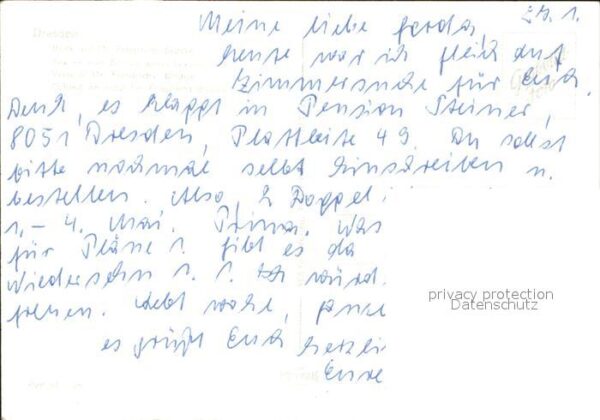 29. 1.
Meine liebe Gerda,
heute war ich gleich auf
Zimmersuche für Euch.
Denk, es klappt in Pension Steiner,
8051 Dresden, Plattleite 49. Du sollst
bitte nochmal selbst hinschreiben u.
bestellen. Also, 2 Doppel
1.- 4. Mai. Prima. Was
für Pläne ? Gibt es da
Wiedersehn ? ? Ich würd
freuen. Lebt wohl,
es grüßt Euch herzli
Eure
privacy protection
Datenschutz
Dresden